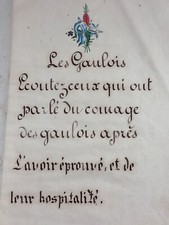 Les Gaulois
Ecoutez ceux qui ont
parlé du courage
des gaulois après
l'avoir éprouvé, et de
leur hospitalité.